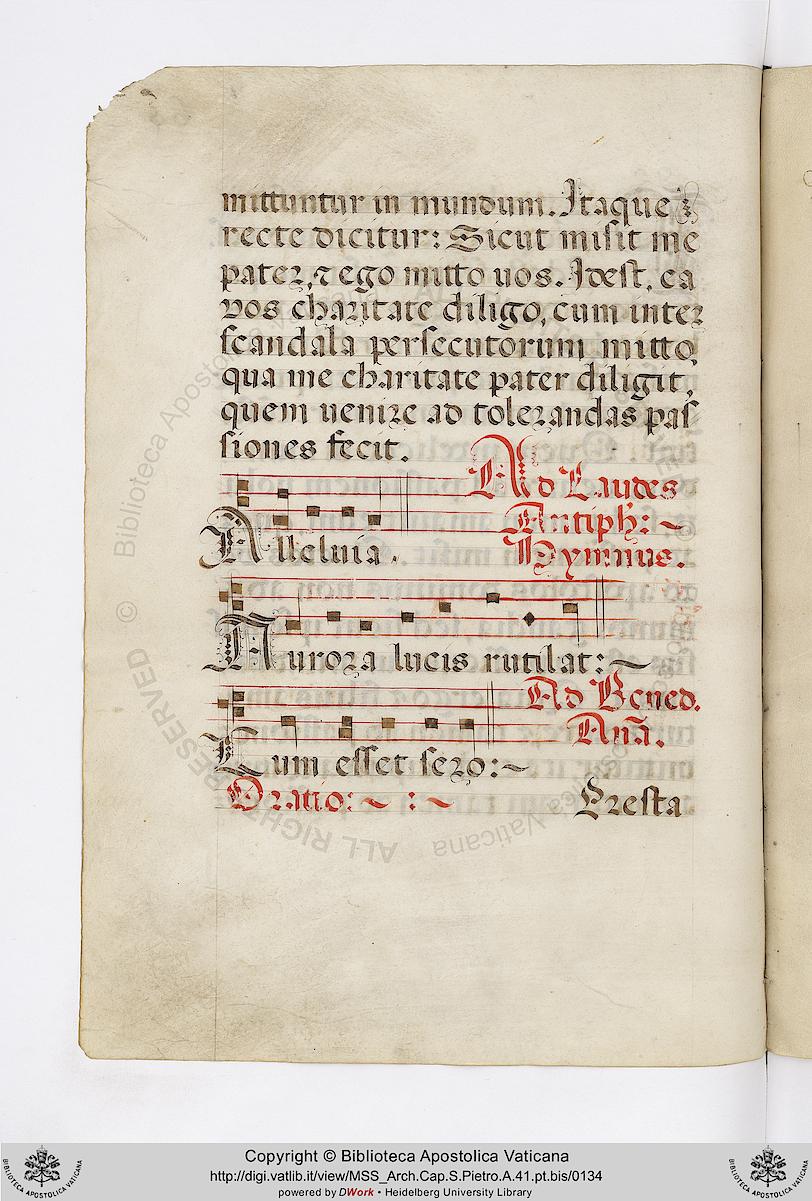 mittuntur in mundum. Itaque
recte dicitur: Sicut misit me
pater, ⁊ ego mitto uos. Idest, ea
vos charitate diligo, cum inter
scandala persecutorum mitto,
qua me charitate pater diligit,
quem uenire ad tolerandas pas
siones fecit.
Ad Laudes
Antiph: ~
Alleluia.
Hymnus.
Aurora lucis rutilat: ~
Ad Bened.
Anã.
Cum esset sero: ~
Oratio: ~ : ~
Presta
BIBLIOTECA APOSTOLICA VATICANA
Copyright © Biblioteca Apostolica Vaticana
http://digi.vatlib.it/view/MSS_Arch.Cap.S.Pietro.A.41.pt.bis/0134
powered by DWork • Heidelberg University Library
BIBLIOTECA APOSTOLICA VATICANA
© Biblioteca Apostolica Vaticana
ALL RIGHTS RESERVED